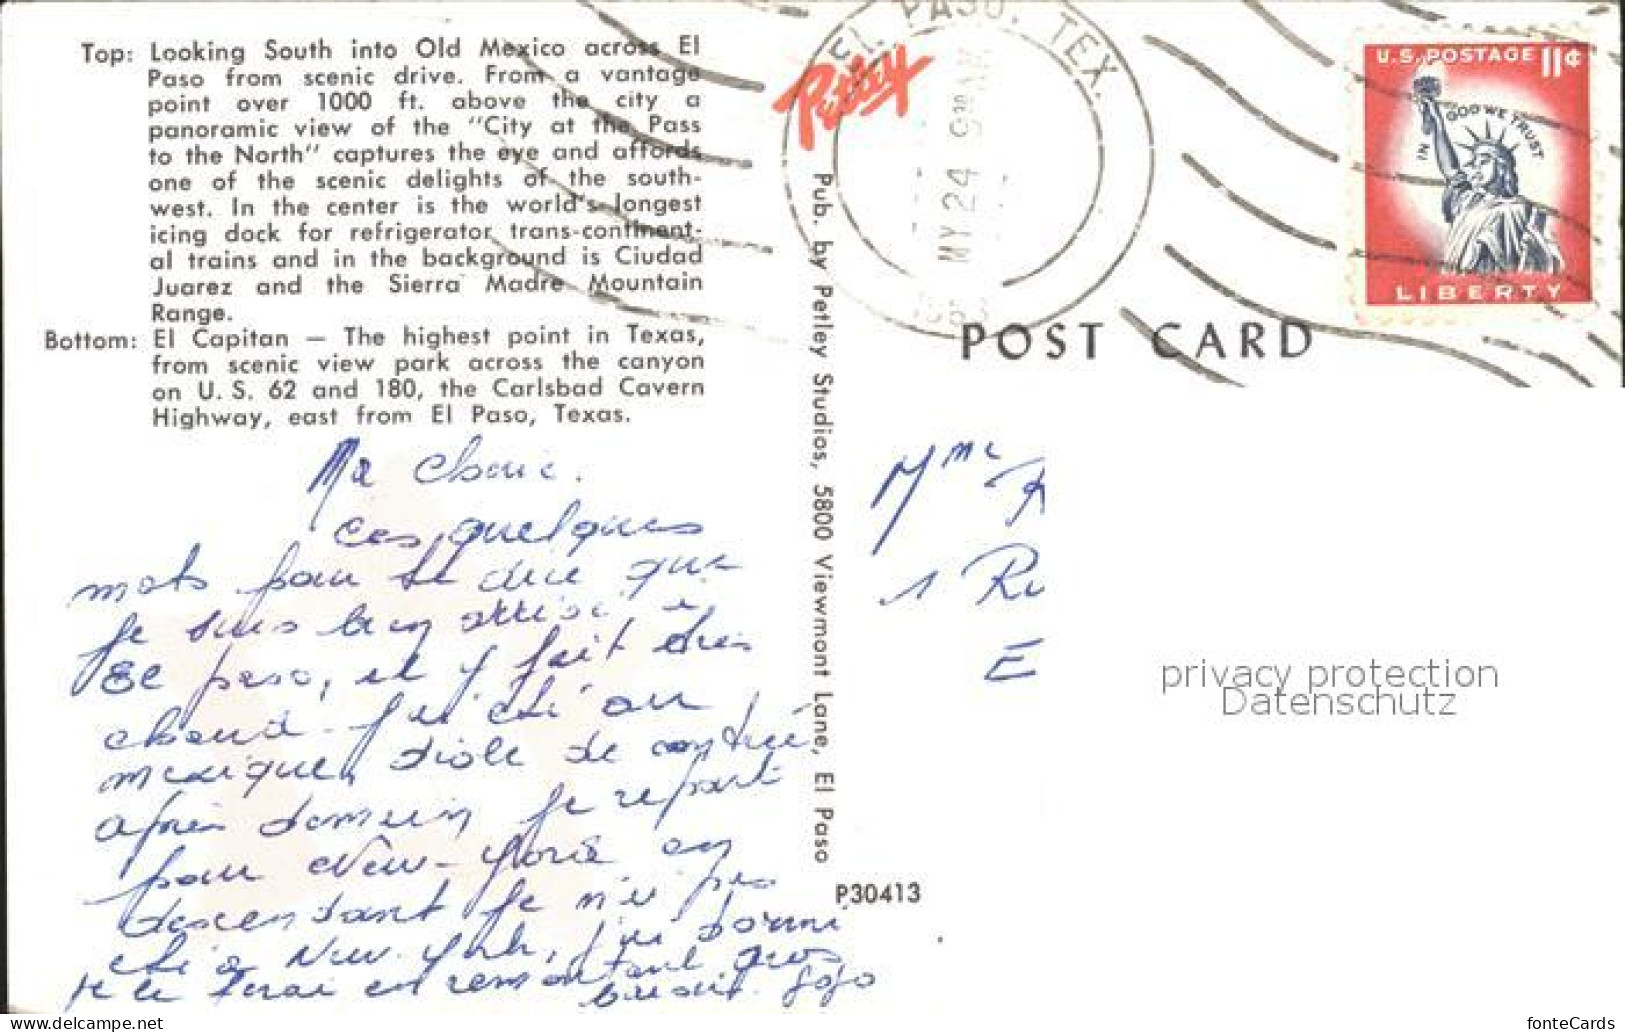 Top: Looking South into Old Mexico across El
Paso from scenic drive. From a vantage
point over 1000 ft. above the city a
panoramic view of the "City at the Pass
to the North" captures the eye and affords
one of the scenic delights of the south-
west. In the center is the world's longest
icing dock for refrigerator trans-continent-
al trains and in the background is Ciudad
Juarez and the Sierra Madre Mountain
Range.
Bottom: El Capitan — The highest point in Texas,
from scenic view park across the canyon
on U. S. 62 and 180, the Carlsbad Cavern
Highway, east from El Paso, Texas.
Ma cherie.
ces quelques
mots pour te dire que
je suis bien arrivé à
El paso, et y fait très
chaud. J'ai été au
mexique, drole de contrée
après demain je repart
pour New-York en
descendant je n'ai pas
été à New-York, j'ai dormi
je le ferai en remontant gros
baisers. Jojo
Petley
Pub. by Petley Studios, 5800 Viewmont Lane, El Paso
P30413
EL PASO, TEX.
MY 24 930 AM
U.S. POSTAGE 11¢
IN GOD WE TRUST
LIBERTY
POST CARD
Mme
1 Ru
E
privacy protection
Datenschutz
www.delcampe.net
fonteCards